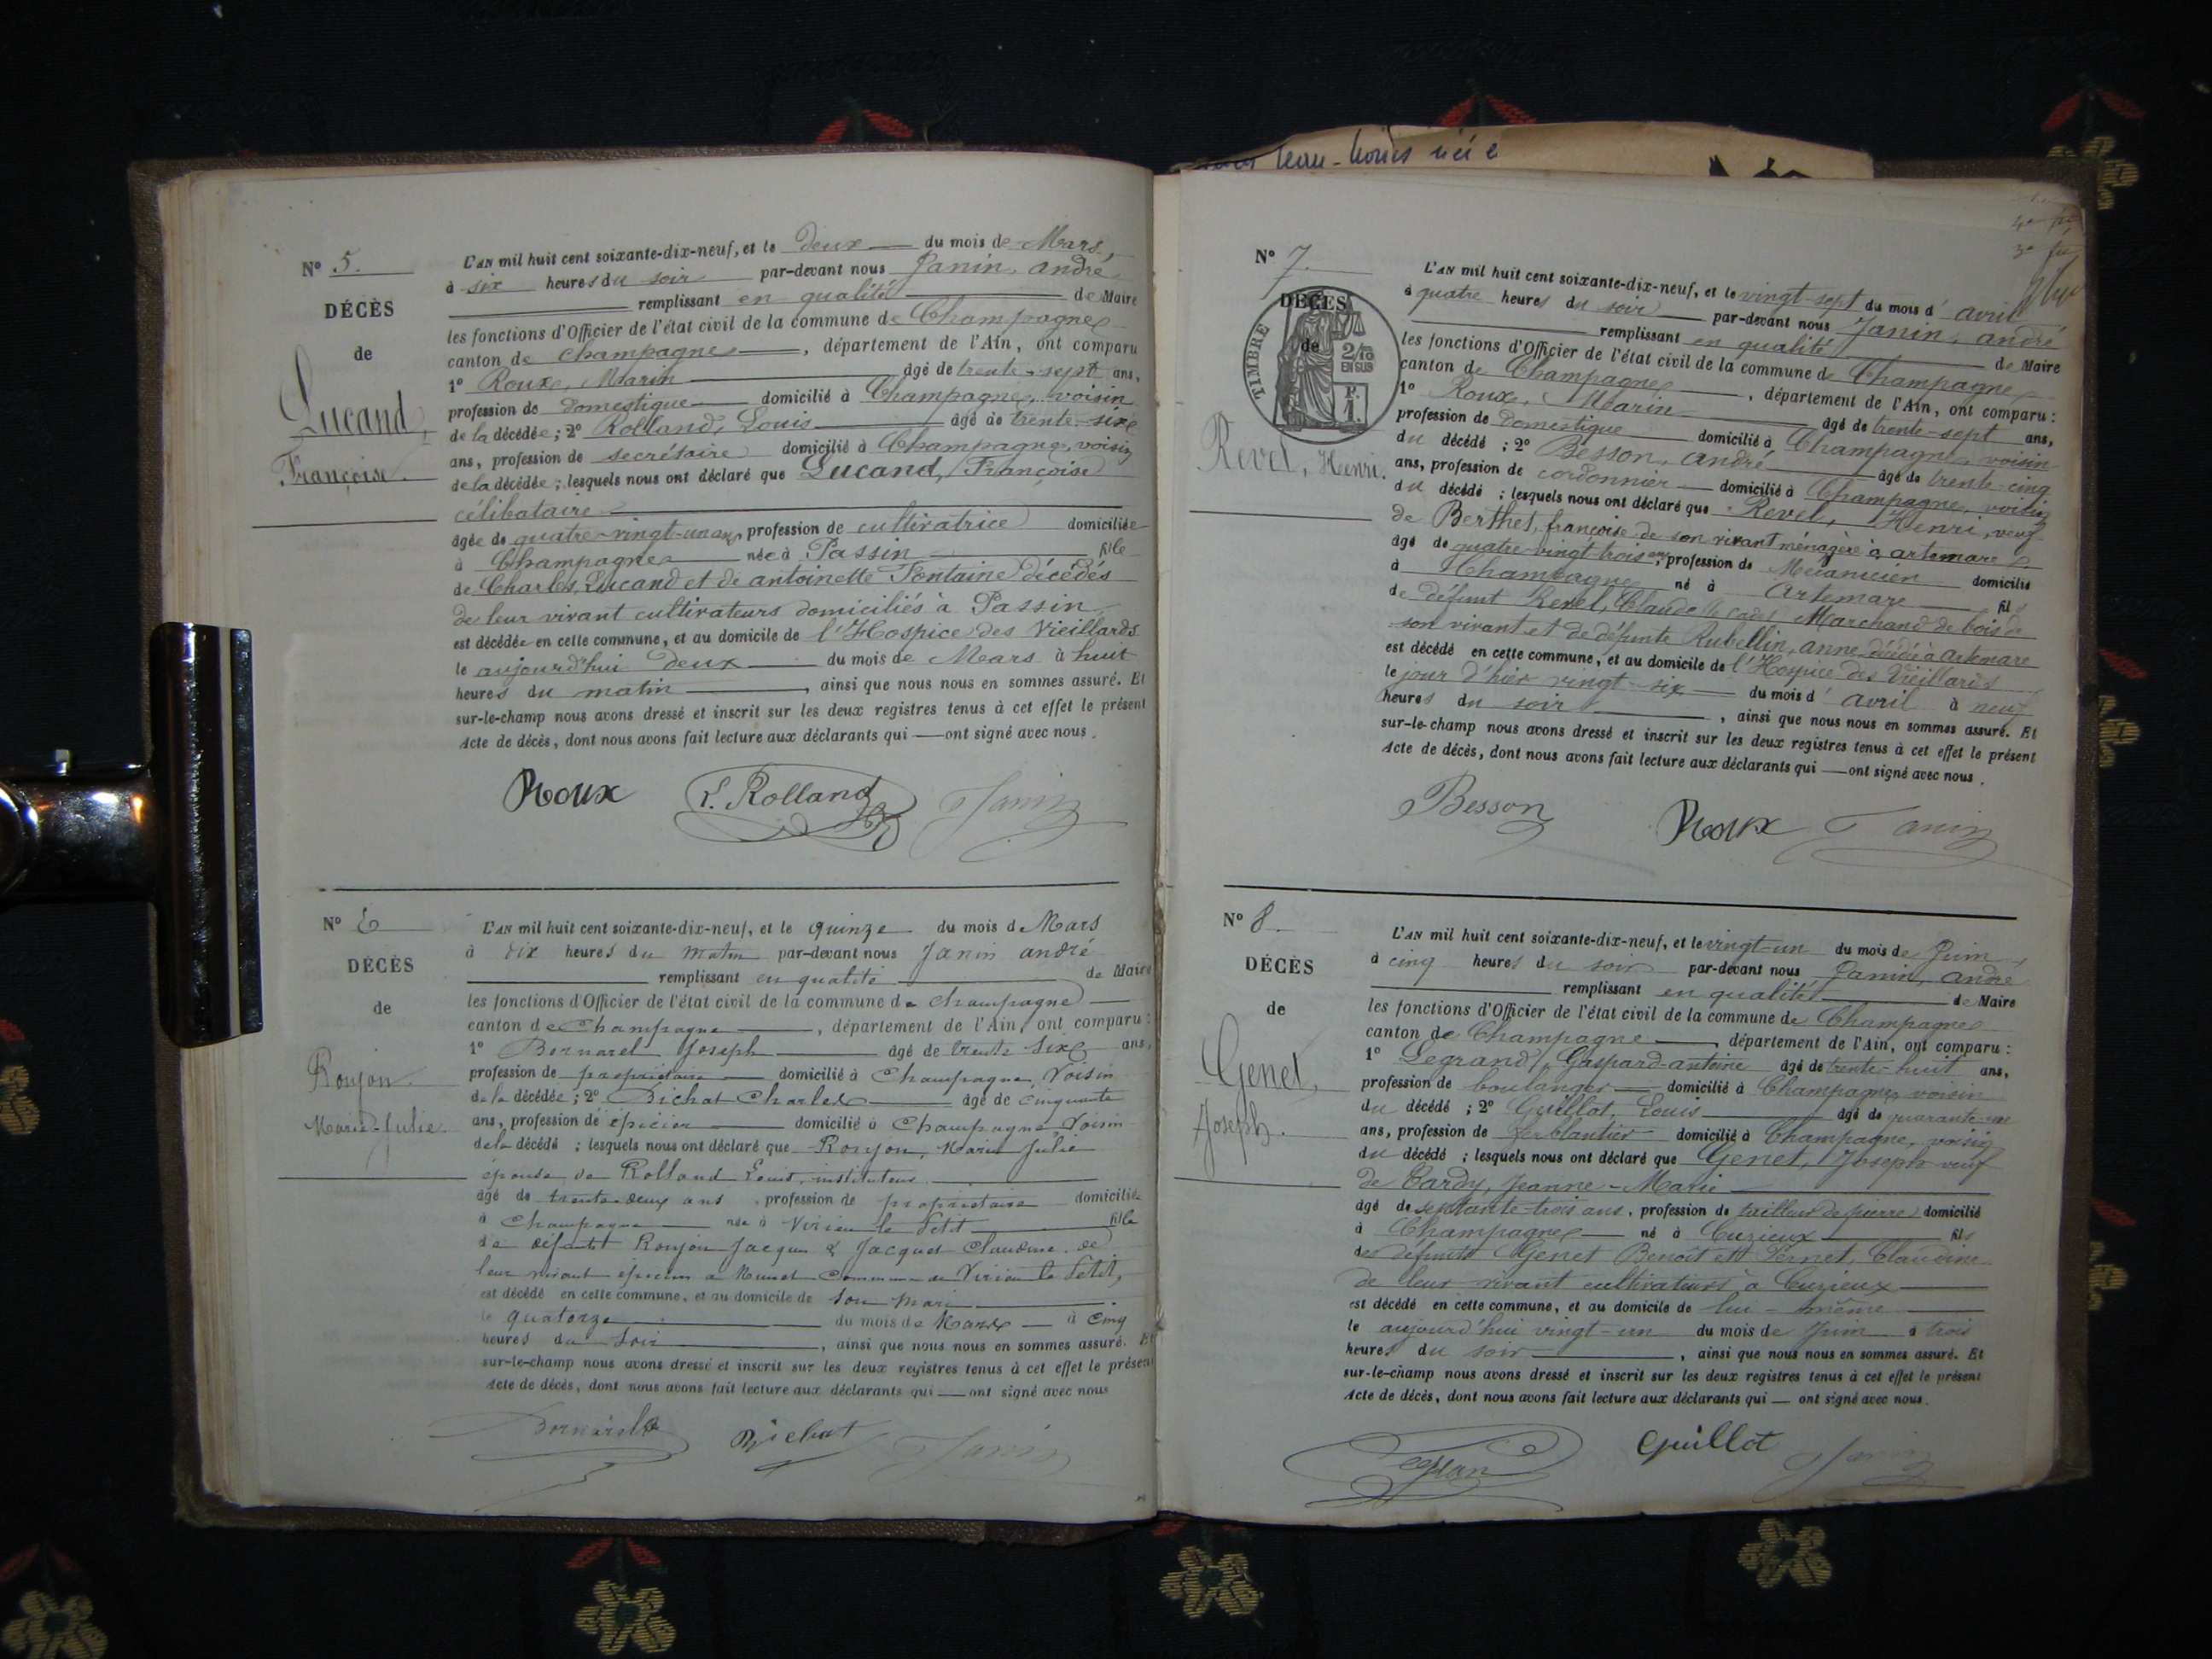 N° 5.
DÉCÈS
de
Lucand,
Françoise.
L'AN mil huit cent soixante-dix-neuf, et le deux du mois de Mars,
à six heures du soir par-devant nous Janin, andré
remplissant en qualité de Maire
les fonctions d'Officier de l'état civil de la commune de Champagne
canton de Champagne, département de l'Ain, ont comparu
1° Roux, Marin âgé de trente-sept ans,
profession de Domestique domicilié à Champagne, voisin
de la décédée; 2° Rolland, Louis âgé de trente-six
ans, profession de secrétaire domicilié à Champagne, voisin
de la décédée; lesquels nous ont déclaré que Lucand, Françoise
célibataire
âgée de quatre-vingt-un ans, profession de cultivatrice domiciliée
à Champagne née à Passin fille
de Charles Lucand et de antoinette Fontaine décédés
de leur vivant cultivateurs domiciliés à Passin
est décédée en cette commune, et au domicile de l'Hospice des Vieillards
le aujourd'hui deux du mois de Mars à huit
heures du matin, ainsi que nous nous en sommes assuré. Et
sur-le-champ nous avons dressé et inscrit sur les deux registres tenus à cet effet le présent
Acte de décès, dont nous avons fait lecture aux déclarants qui ont signé avec nous.
Roux L. Rolland Janin
N° 6
DÉCÈS
de
Roujon
Marie-Julie.
L'AN mil huit cent soixante-dix-neuf, et le quinze du mois de Mars
à dix heures du matin par-devant nous Janin andré
remplissant en qualité de Maire
les fonctions d'Officier de l'état civil de la commune de Champagne
canton de Champagne, département de l'Ain, ont comparu:
1° Bornarel Joseph âgé de trente six ans,
profession de propriétaire domicilié à Champagne, Voisin
de la décédée; 2° Bichat Charles âgé de cinquante
ans, profession de épicier domicilié à Champagne Voisin
de la décédé; lesquels nous ont déclaré que Roujon, Marie Julie
épouse de Rolland Louis, instituteur
âgé de trente-deux ans, profession de propriétaire domiciliée
à Champagne née à Virieu le Petit fille
de défunts Roujon Jacques & Jacquet Claudine de
leur vivant à commune de Virieu le Petit,
est décédé en cette commune, et au domicile de son mari
le quatorze du mois de Mars à Cinq
heures du Soir, ainsi que nous nous en sommes assuré. Et
sur-le-champ nous avons dressé et inscrit sur les deux registres tenus à cet effet le présent
Acte de décès, dont nous avons fait lecture aux déclarants qui ont signé avec nous
Bichat Janin
N° 7.
DÉCÈS
de
TIMBRE
2/10
EN SUS
P.
1.
Revel, Henri.
L'AN mil huit cent soixante-dix-neuf, et le vingt-sept du mois d'avril
à quatre heures du soir par-devant nous Janin, andré
remplissant en qualité de Maire
les fonctions d'Officier de l'état civil de la commune de Champagne
canton de Champagne, département de l'Ain, ont comparu:
1° Roux, Marin âgé de trente-sept ans,
profession de Domestique domicilié à Champagne, voisin
du décédé; 2° Besson, andré âgé de trente-cinq
ans, profession de cordonnier domicilié à Champagne, voisin
du décédé; lesquels nous ont déclaré que Revel, Henri, veuf
de Berthet, françoise de son vivant ménagère à artemare
âgé de quatre-vingt-trois ans, profession de Mécanicien domicilié
à Champagne né à Artemare fils
de défunt Revel, Claude le cadet Marchand de bois de
son vivant et de défunte Rubellin, anne décédée à artemare
est décédé en cette commune, et au domicile de l'Hospice des Vieillards
le jour d'hier vingt-six du mois d'avril à neuf
heures du soir, ainsi que nous nous en sommes assuré. Et
sur-le-champ nous avons dressé et inscrit sur les deux registres tenus à cet effet le présent
Acte de décès, dont nous avons fait lecture aux déclarants qui ont signé avec nous.
Besson Roux Janin
N° 8.
DÉCÈS
de
Genet,
Joseph.
L'AN mil huit cent soixante-dix-neuf, et le vingt-un du mois de Juin
à cinq heures du soir par-devant nous Janin, andré
remplissant en qualité de Maire
les fonctions d'Officier de l'état civil de la commune de Champagne
canton de Champagne, département de l'Ain, ont comparu:
1° Legrand, Gaspard-antoine âgé de trente-huit ans,
profession de boulanger domicilié à Champagne, voisin
du décédé; 2° Guillot, Louis âgé de quarante-un
ans, profession de ferblantier domicilié à Champagne, voisin
du décédé; lesquels nous ont déclaré que Genet, Joseph veuf
de Tardy, Jeanne-Marie
âgé de septante-trois ans, profession de tailleur de pierre domicilié
à Champagne né à Cuzieux fils
des défunts Genet Benoît et Claudine
de leur vivant cultivateurs à Cuzieux
est décédé en cette commune, et au domicile de lui-même
le aujourd'hui vingt-un du mois de Juin à trois
heures du soir, ainsi que nous nous en sommes assuré. Et
sur-le-champ nous avons dressé et inscrit sur les deux registres tenus à cet effet le présent
Acte de décès, dont nous avons fait lecture aux déclarants qui ont signé avec nous.
Guillot Janin